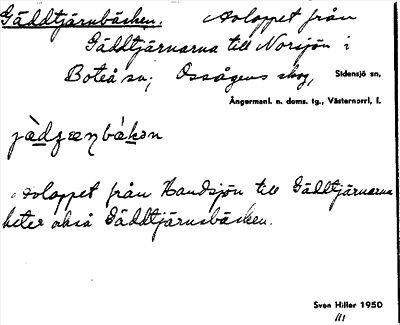 Gäddtjärnbäcken. Avloppet från
Gäddtjärnarna till Norsjön i
Boteå sn; Ossågens skog, Sidensjö sn,
Ångermanl. n. doms. tg., Västernorrl. l.
Avloppet från Handsjön till Gäddtjärnarna
heter också Gäddtjärnsbäcken.
Sven Hiller 1950